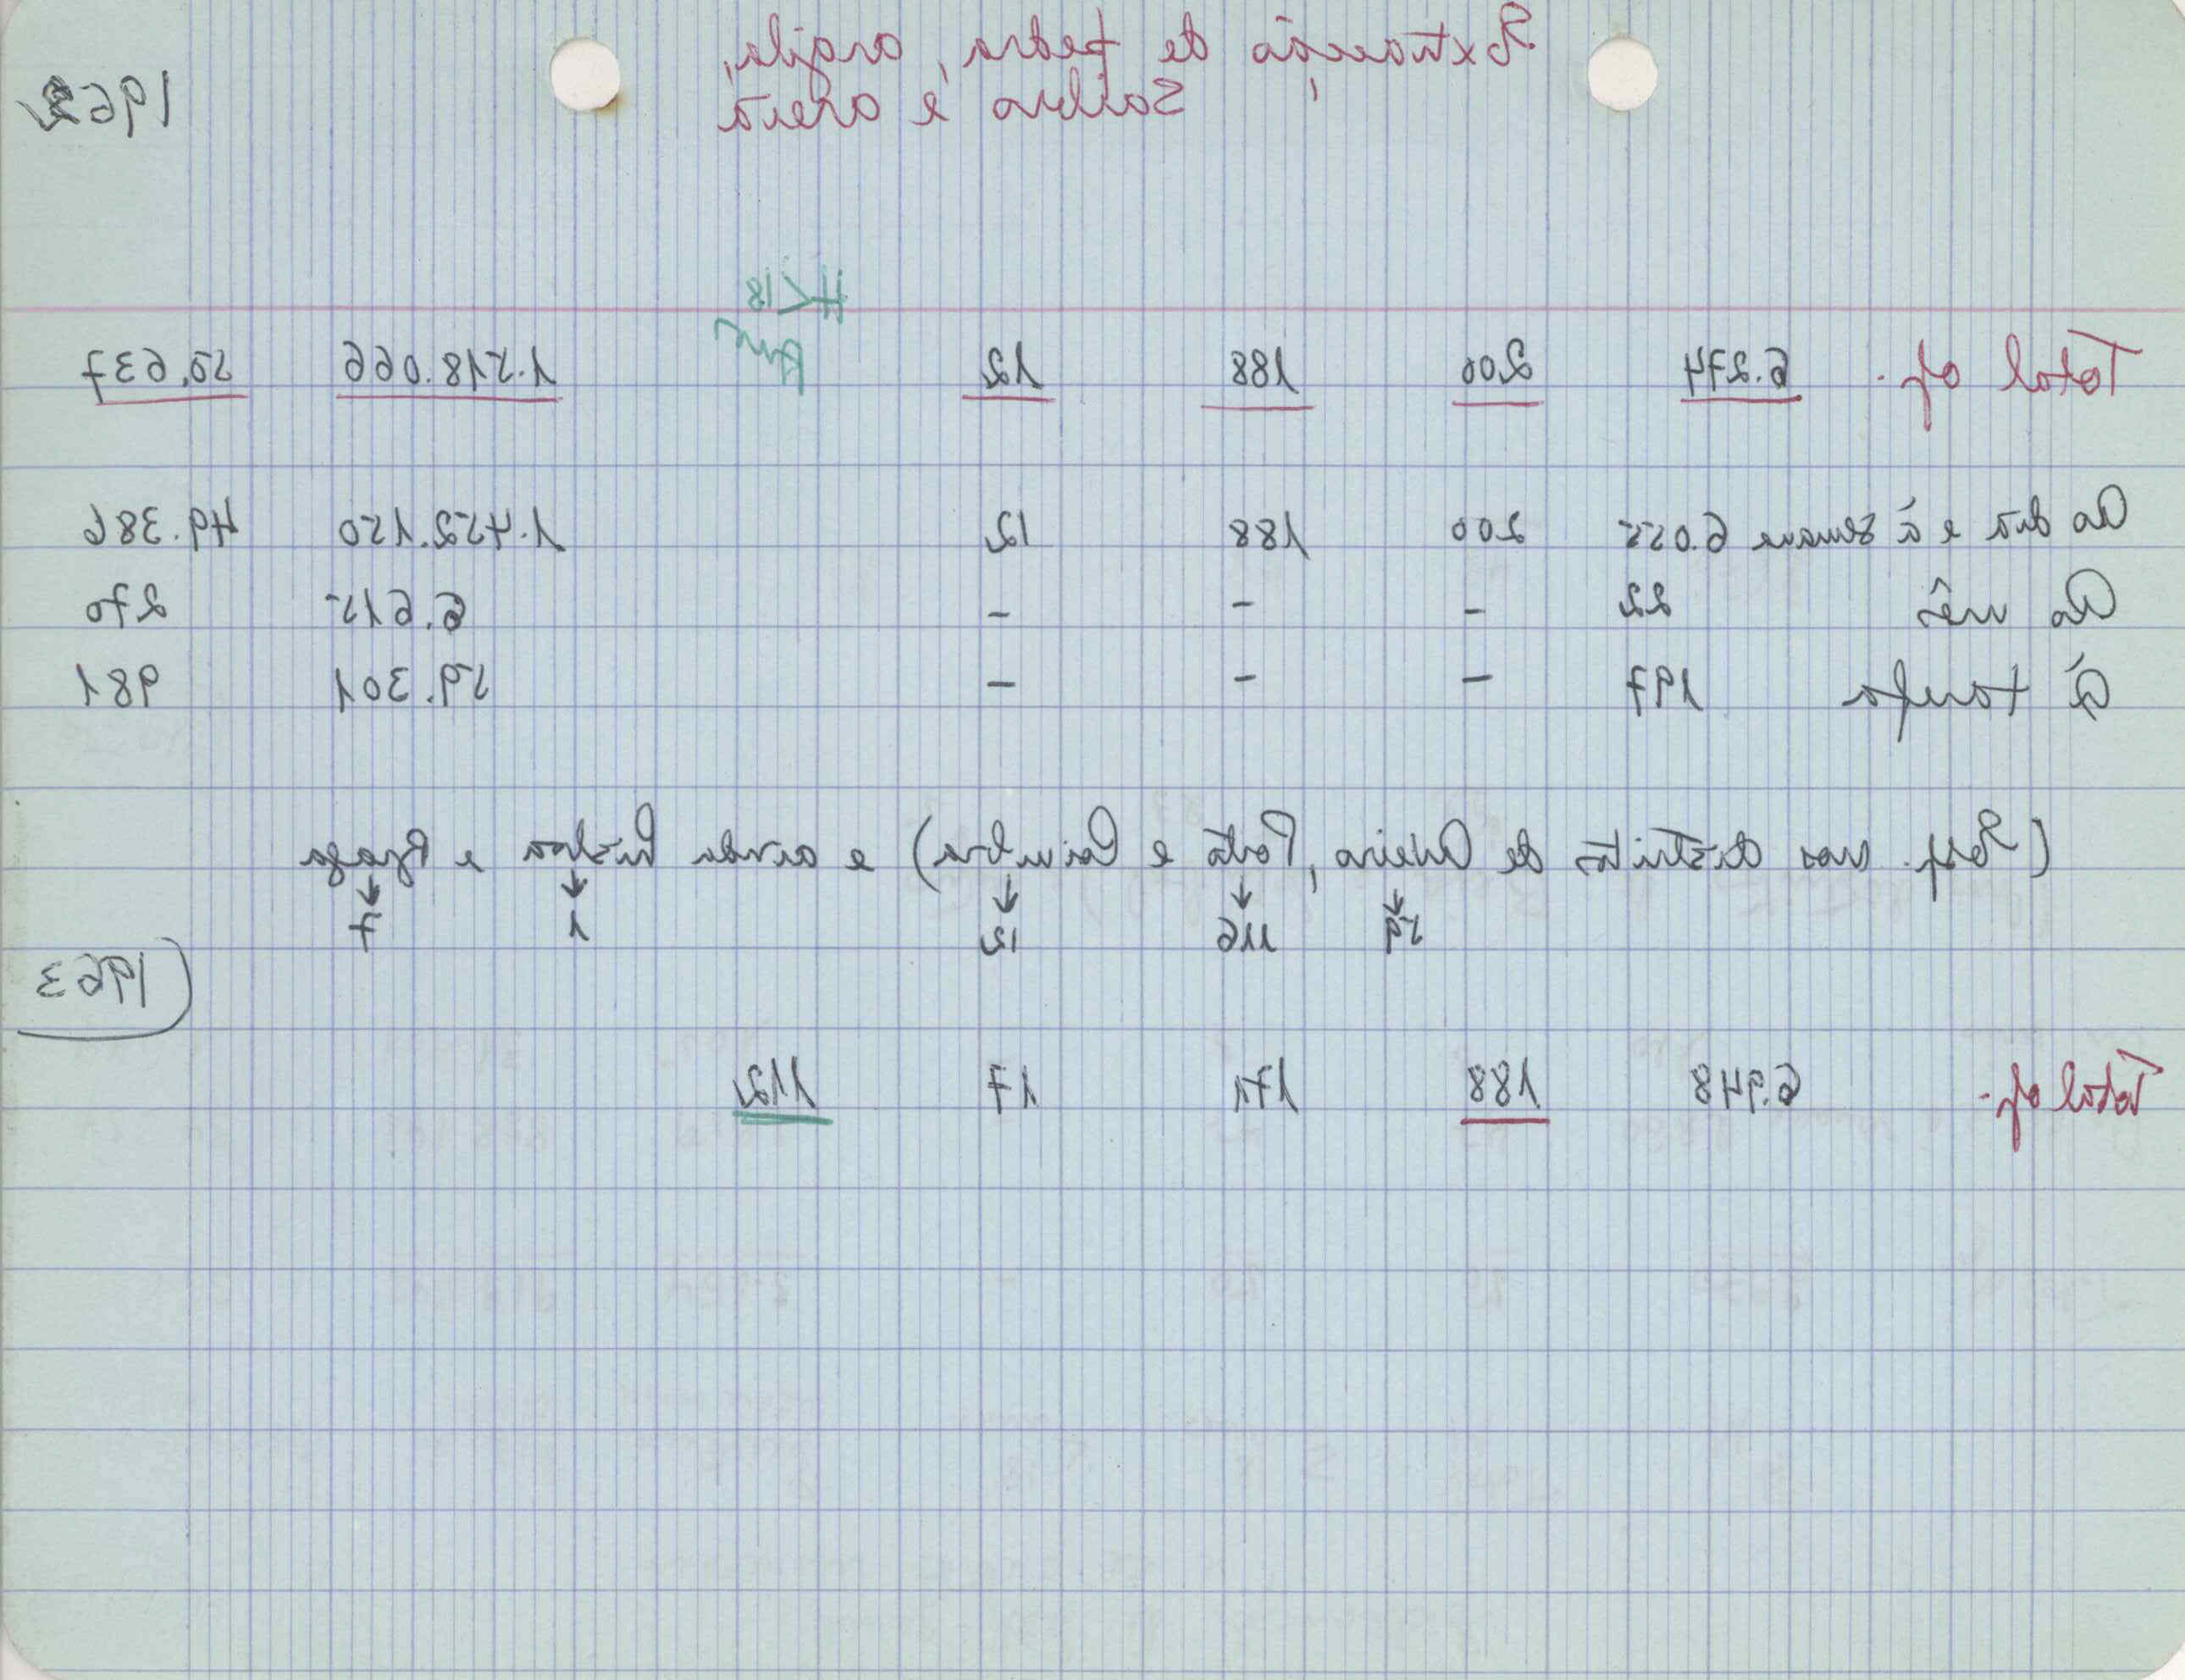 Extracção de pedra, argila,
Saibro e areia
1962
H<18
Total of. 6.274 200 188 12 1.518.066 50.637
Ao dia e à semana 6.055 200 188 12 1.452.150 49.386
Ao mês 22 - - - 6.615 270
À tarefa 197 - - - 59.301 981
(Resp. nos distritos de Aveiro, Porto e Coimbra) e ainda Lisboa e Braga
↓ ↓ ↓ ↓ ↓
59 116 12 1 7
1963
Total of. 6.948 188 171 17 112